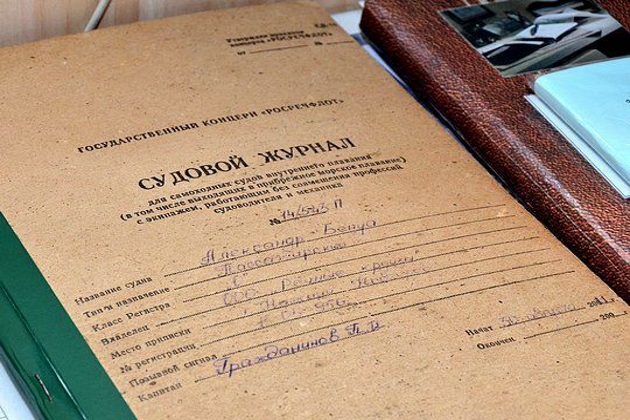 Утверждён
концерн «РОСРЕЧФЛОТ»
от №
ГОСУДАРСТВЕННЫЙ КОНЦЕРН «РОСРЕЧФЛОТ»
СУДОВОЙ ЖУРНАЛ
для самоходных судов внутреннего плавания
(в том числе выходящих в прибрежное морское плавание)
с экипажем, работающим без совмещения профессий
судоводителя и механика
№
Название судна Александр Бенуа
Тип и назначение Пассажирский
Класс Регистра
Владелец ООО
Место приписки Нижний Новгород
№ регистрации
Позывной сигнал
Капитан Гражданинов П.И
Начат
Окончен 200